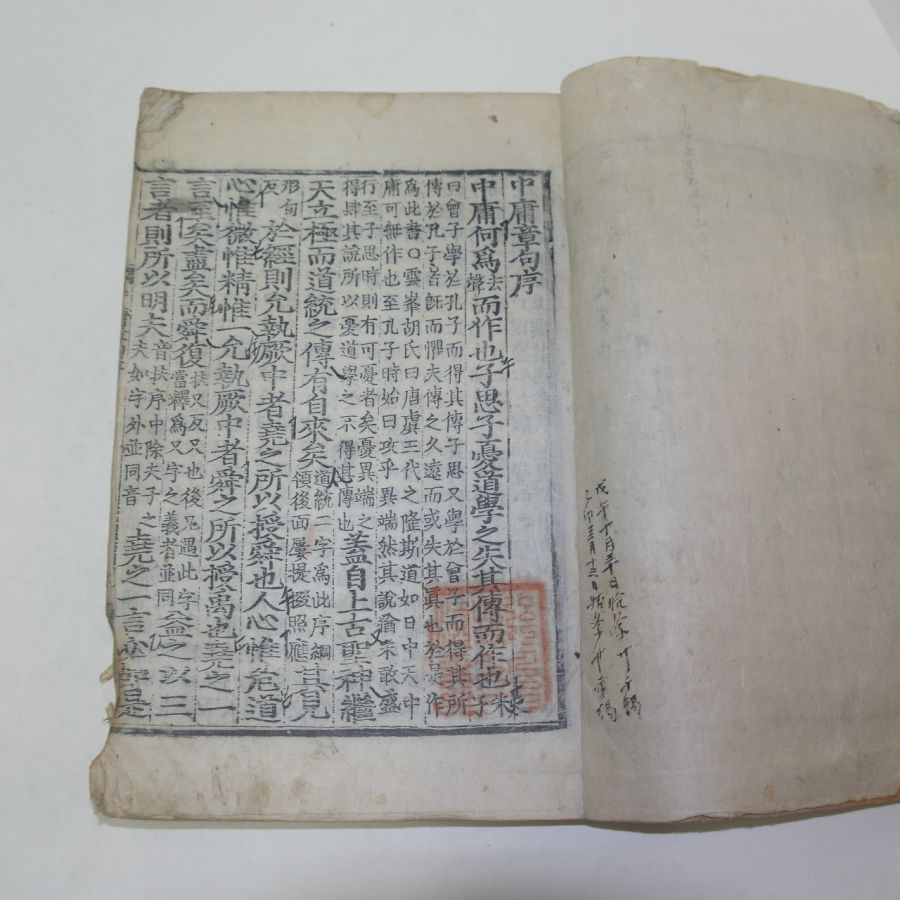 中庸章句序
中庸何爲去聲而作也子思子憂道學之失其傳而作也朱子
曰曾子學於孔子而得其傳子思又學於曾子而得其所
傳於孔子者旣而懼夫傳之久遠而或失其眞也於是作
爲此書○雲峯胡氏曰唐虞三代之隆斯道如日中天中
庸可無作也至孔子時始曰攻乎異端然其說猶未敢盛
行至子思時則有可憂者矣憂異端之
得肆其說所以憂道學之不得其傳也蓋自上古聖神繼
天立極而道統之傳有自來矣道統二字爲此序綱領後面屢提掇照應其見
形甸反於經則允執厥中者堯之所以授舜也人心惟危道
心惟微惟精惟一允執厥中者舜之所以授禹也堯之一
言至矣盡矣而舜復扶又反又也後凡遇此字當釋爲又字之義者並同益之以三
言者則所以明夫音扶序中除夫子之夫如字外並同音堯之一言必如是